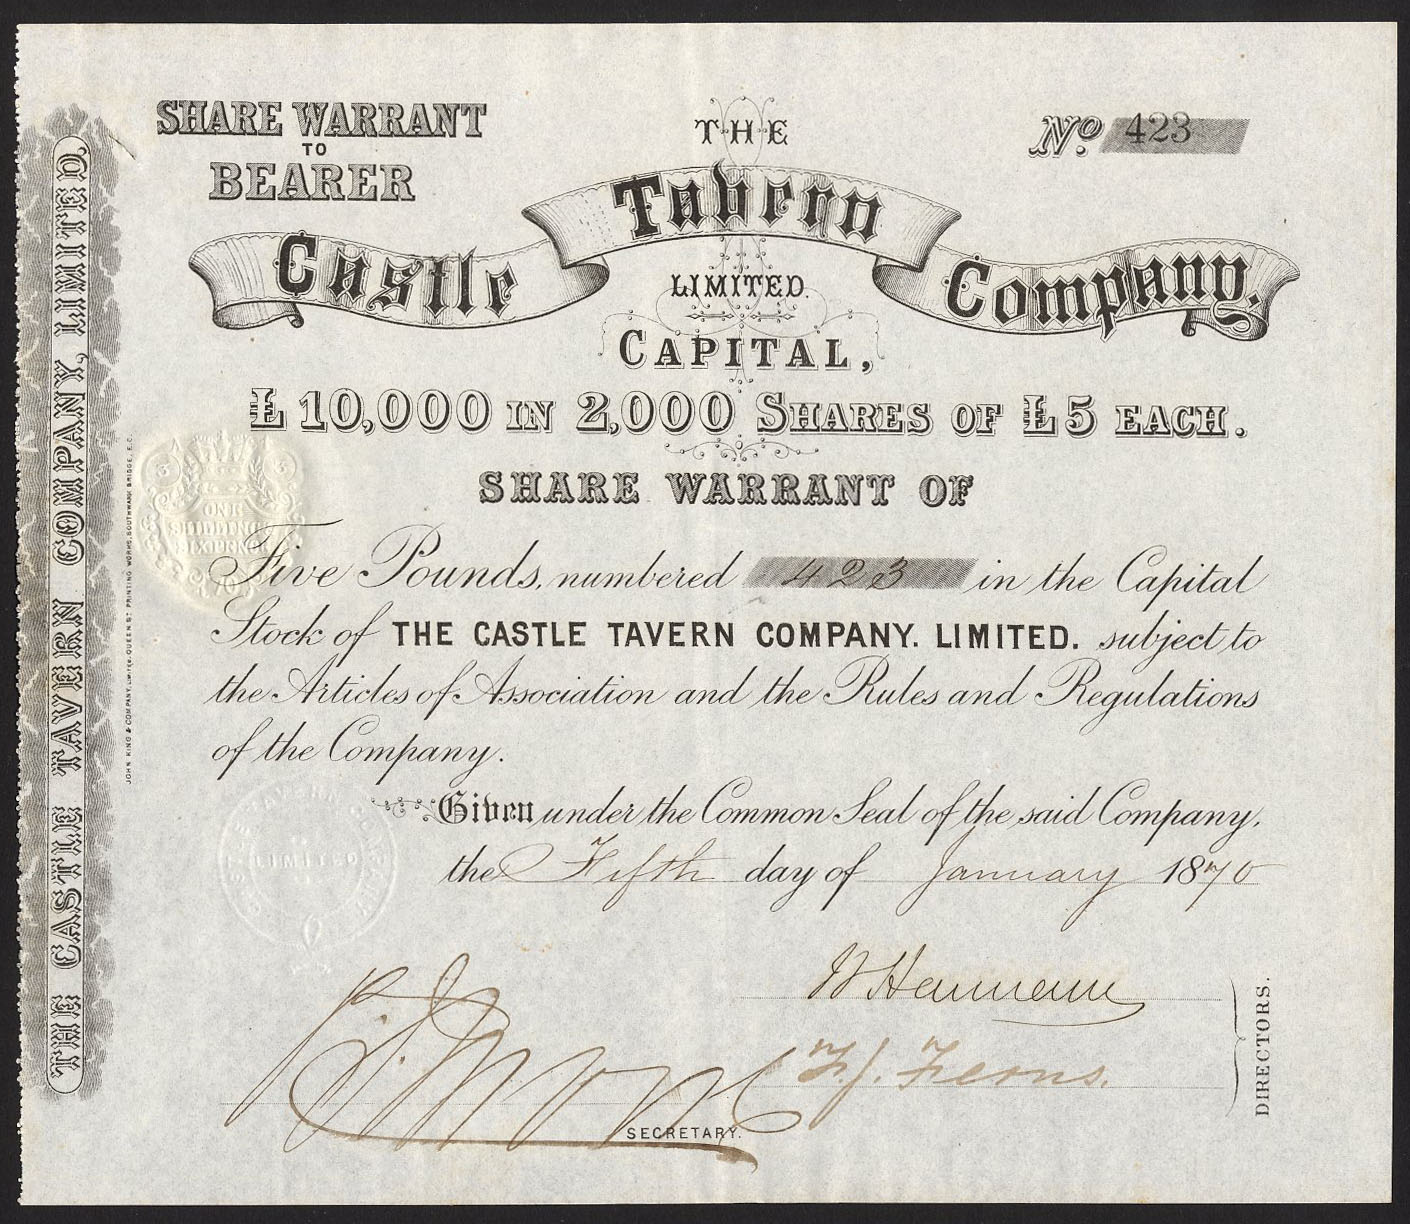 SHARE WARRANT
TO
BEARER
THE
No. 423
Castle Tavern Company.
LIMITED.
CAPITAL,
£10,000 IN 2,000 SHARES OF £5 EACH.
SHARE WARRANT OF
Five Pounds, numbered 423 in the Capital
Stock of THE CASTLE TAVERN COMPANY. LIMITED. subject to
the Articles of Association and the Rules and Regulations
of the Company.
Given under the Common Seal of the said Company,
the Fifth day of January 1870
F. J. Ferns.
DIRECTORS.
SECRETARY.
THE CASTLE TAVERN COMPANY, LIMITED.
JOHN KING & COMPANY, LIMITED, QUEEN ST. PRINTING WORKS, SOUTHWARK BRIDGE, E.C.
3 3
ONE
SHILLING &
SIXPENCE
CASTLE TAVERN COMPANY
LIMITED